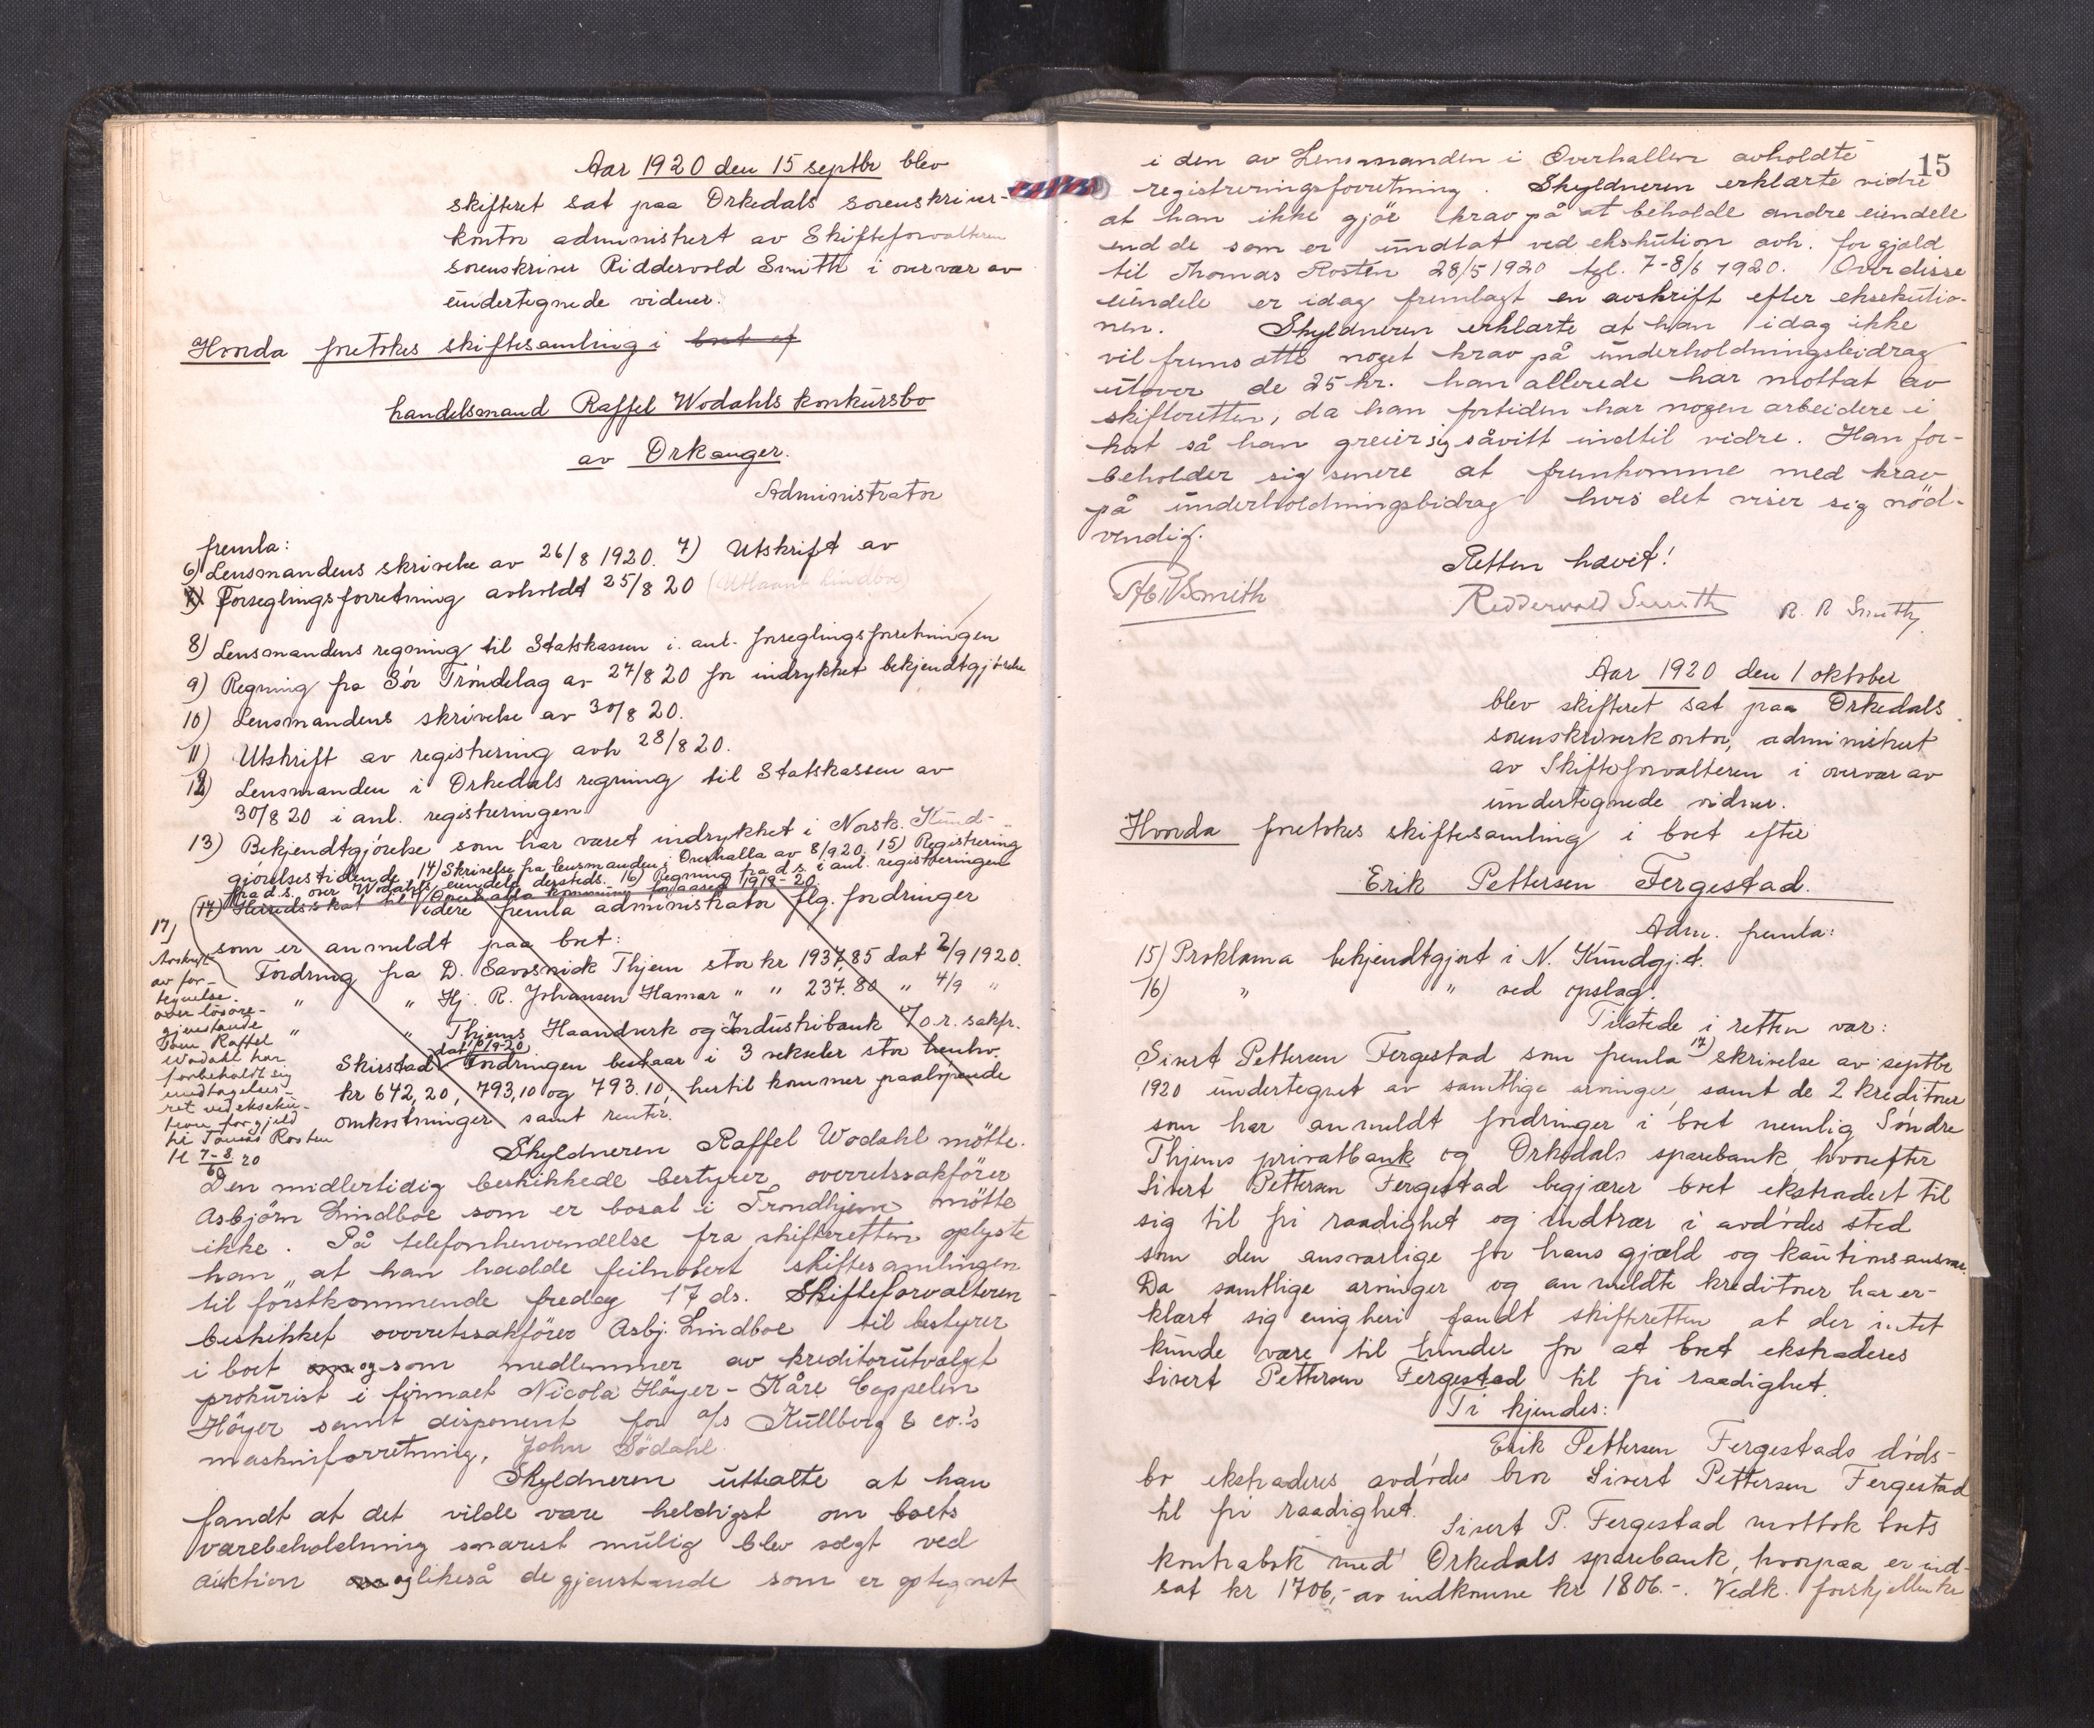 Aar 1920 den 15 septbr blev
skifteret sat paa Orkedals sorenskriver-
kontor administrert av Skifteforvalteren
sorenskriver Riddervold Smith i overvær av
undertegnede vidner.
Hvorda foretokes skiftesamling i boet ef
handelsmand Raffel Wodahls konkursbo
av Orkanger.
Administrator
fremla:
6) Lensmandens skrivelse av 26/8 1920. 7) Utskrift av
Forseglingsforretning avholdt 25/8 20 (Utlaant Lindboe)
8) Lensmandens regning til Statskassen i anl. forseglingsforretningen
9) Regning fra Sör Tröndelag av 27/8 20 for indrykket bekjendtgjörelse
10) Lensmandens skrivelse av 30/8 20.
11) Utskrift av registrering avh 28/8 20.
12) Lensmanden i Orkedals regning til Statskassen av
30/8 20 i anl. registreringen
13) Bekjendtgjörelse som har været indrykket i Norsk. Kund-
gjörelsestidende 14) Skrivelse fra lensmanden i Overhalla av 8/9 20. 15) Registrering
fra d.s. over Wodahls eiendele dersteds. 16) Regning fra d.s. i anl. registreringen
(17) Herredsskat til Overhalla kommune for aaret 1919-20
videre fremla administrator flg. fordringer
som er anmeldt paa boet:
Fordring fra D. Savosnick Thjem stor kr 1937,85 dat 2/9 1920.
" " Hj. R. Johansen Hamar " " 237.80 " 4/9 "
" " Thjems Haandverk og Industribank v/o.r. sakfr.
Skirstad dat 10/9-20 Fordringen bestaar i 3 veksler stor henhv.
kr 642,20, 793,10 og 793.10, hertil kommer paalöpende
omkostninger samt renter.
17)
Avskrift
av for-
tegnelse
over lösöre-
gjenstande
som Raffel
Wodahl har
forbeholdt sig
undtagelses-
ret ved ekseku-
tion for gjeld
til Tomas Rosten
tl 7-8/6 20
Skyldneren Raffel Wodahl mötte.
Den midlertidig beskikkede bestyrer overretssakförer
Asbjörn Lindboe som er bosat i Trondhjem mötte
ikke. På telefonhenvendelse fra skifteretten oplyste
han at han hadde feilnotert skiftesamlingen
til förstkommende fredag 17 ds. Skifteforvalteren
beskikket overretssakförer Asbj. Lindboe til bestyrer
i boet og som medlemmer av kreditorutvalget
prokurist i firmaet Nicolai Höyer - Kåre Coppelin
Höyer samt disponent for a/s Kullberg & co.'s
maskinforretning, John Södahl.
Skyldneren uttalte at han
fandt at det vilde være heldigst om boets
varebeholdning snarest mulig blev solgt ved
auktion og likeså de gjenstande som er optegnet
15
i den av Lensmanden i Overhallen avholdte
registreringsforretning. Skyldneren erklærte vidre
at han ikke gjör krav på at beholde andre eiendele
end de som er undtat ved ekskution avh. for gjæld
til Thomas Rosten 28/5 1920 tgl. 7-8/6 1920. Over disse
eiendele er idag fremlagt en avskrift efter eksekutio-
nen. Skyldneren erklærte at han idag ikke
vil fremsætte noget krav på underholdningsbidrag
utover de 25 kr. han allerede har mottat av
skifteretten, da han fortiden har nogen arbeidere i
kost så han greier sig såvitt indtil vidre. Han for-
beholder sig senere at fremkomme med krav
på underholdningsbidrag hvis det viser sig nöd-
vendig.
Retten hævet!
Riddervold Smith R. R Smith
Aar 1920 den 1 oktober
blev skifteret sat paa Orkedals
sorenskriverkontor, administrert
av Skifteforvalteren i overvær av
undertegnede vidner.
Hvorda foretokes skiftesamling i boet efter
Erik Pettersen Fergestad.
Adm. fremla:
15) Proklama bekjendtgjort i N. Kundgj.t.
16) " " ved opslag.
Tilstede i retten var:
Sivert Pettersen Fergestad som fremla 17) skrivelse av septbr
1920 undertegnet av samtlige arvinger, samt de 2 kreditorer
som har anmeldt fordringer i boet nemlig Söndre
Thjems privatbank og Orkedals sparebank, hvorefter
Sivert Pettersen Fergestad begjærer boet ekstradert til
sig til fri raadighet og indtrær i avdödes sted
som den ansvarlige for hans gjæld og kautionsansvar.
Da samtlige arvinger og anmeldte kreditorer har er-
klært sig enig heri fandt skifteretten at der intet
kunde være til hinder for at boet ekstraderes
Sivert Pettersen Fergestad til fri raadighet.
Ti kjendes:
Erik Pettersen Fergestads döds-
bo ekstraderes avdödes bror Sivert Pettersen Fergestad
til fri raadighet.
Sivert P. Fergestad mottok boets
kontrabok med Orkedals sparebank, hvorpaa er ind-
sat kr 1706,- av indkomne kr 1806.-. Vedk. forskjellen kr